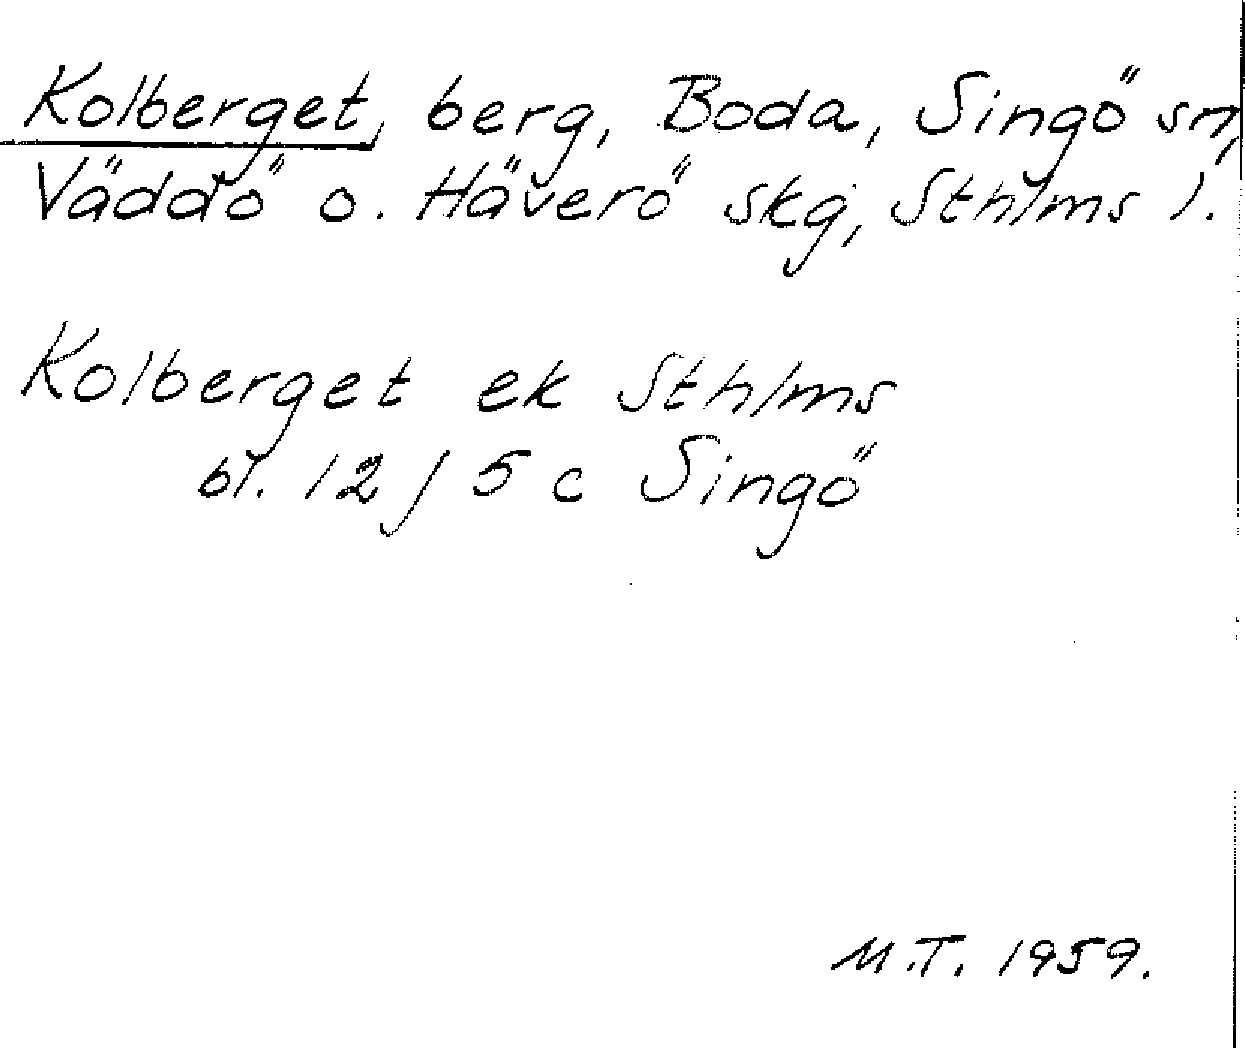 Kolberget, berg, Boda, Singö sn,
Väddö o. Häverö skg, Sthlms l.
Kolberget ek Sthlms
bl. 12 J 5 c Singö
M.T. 1959.